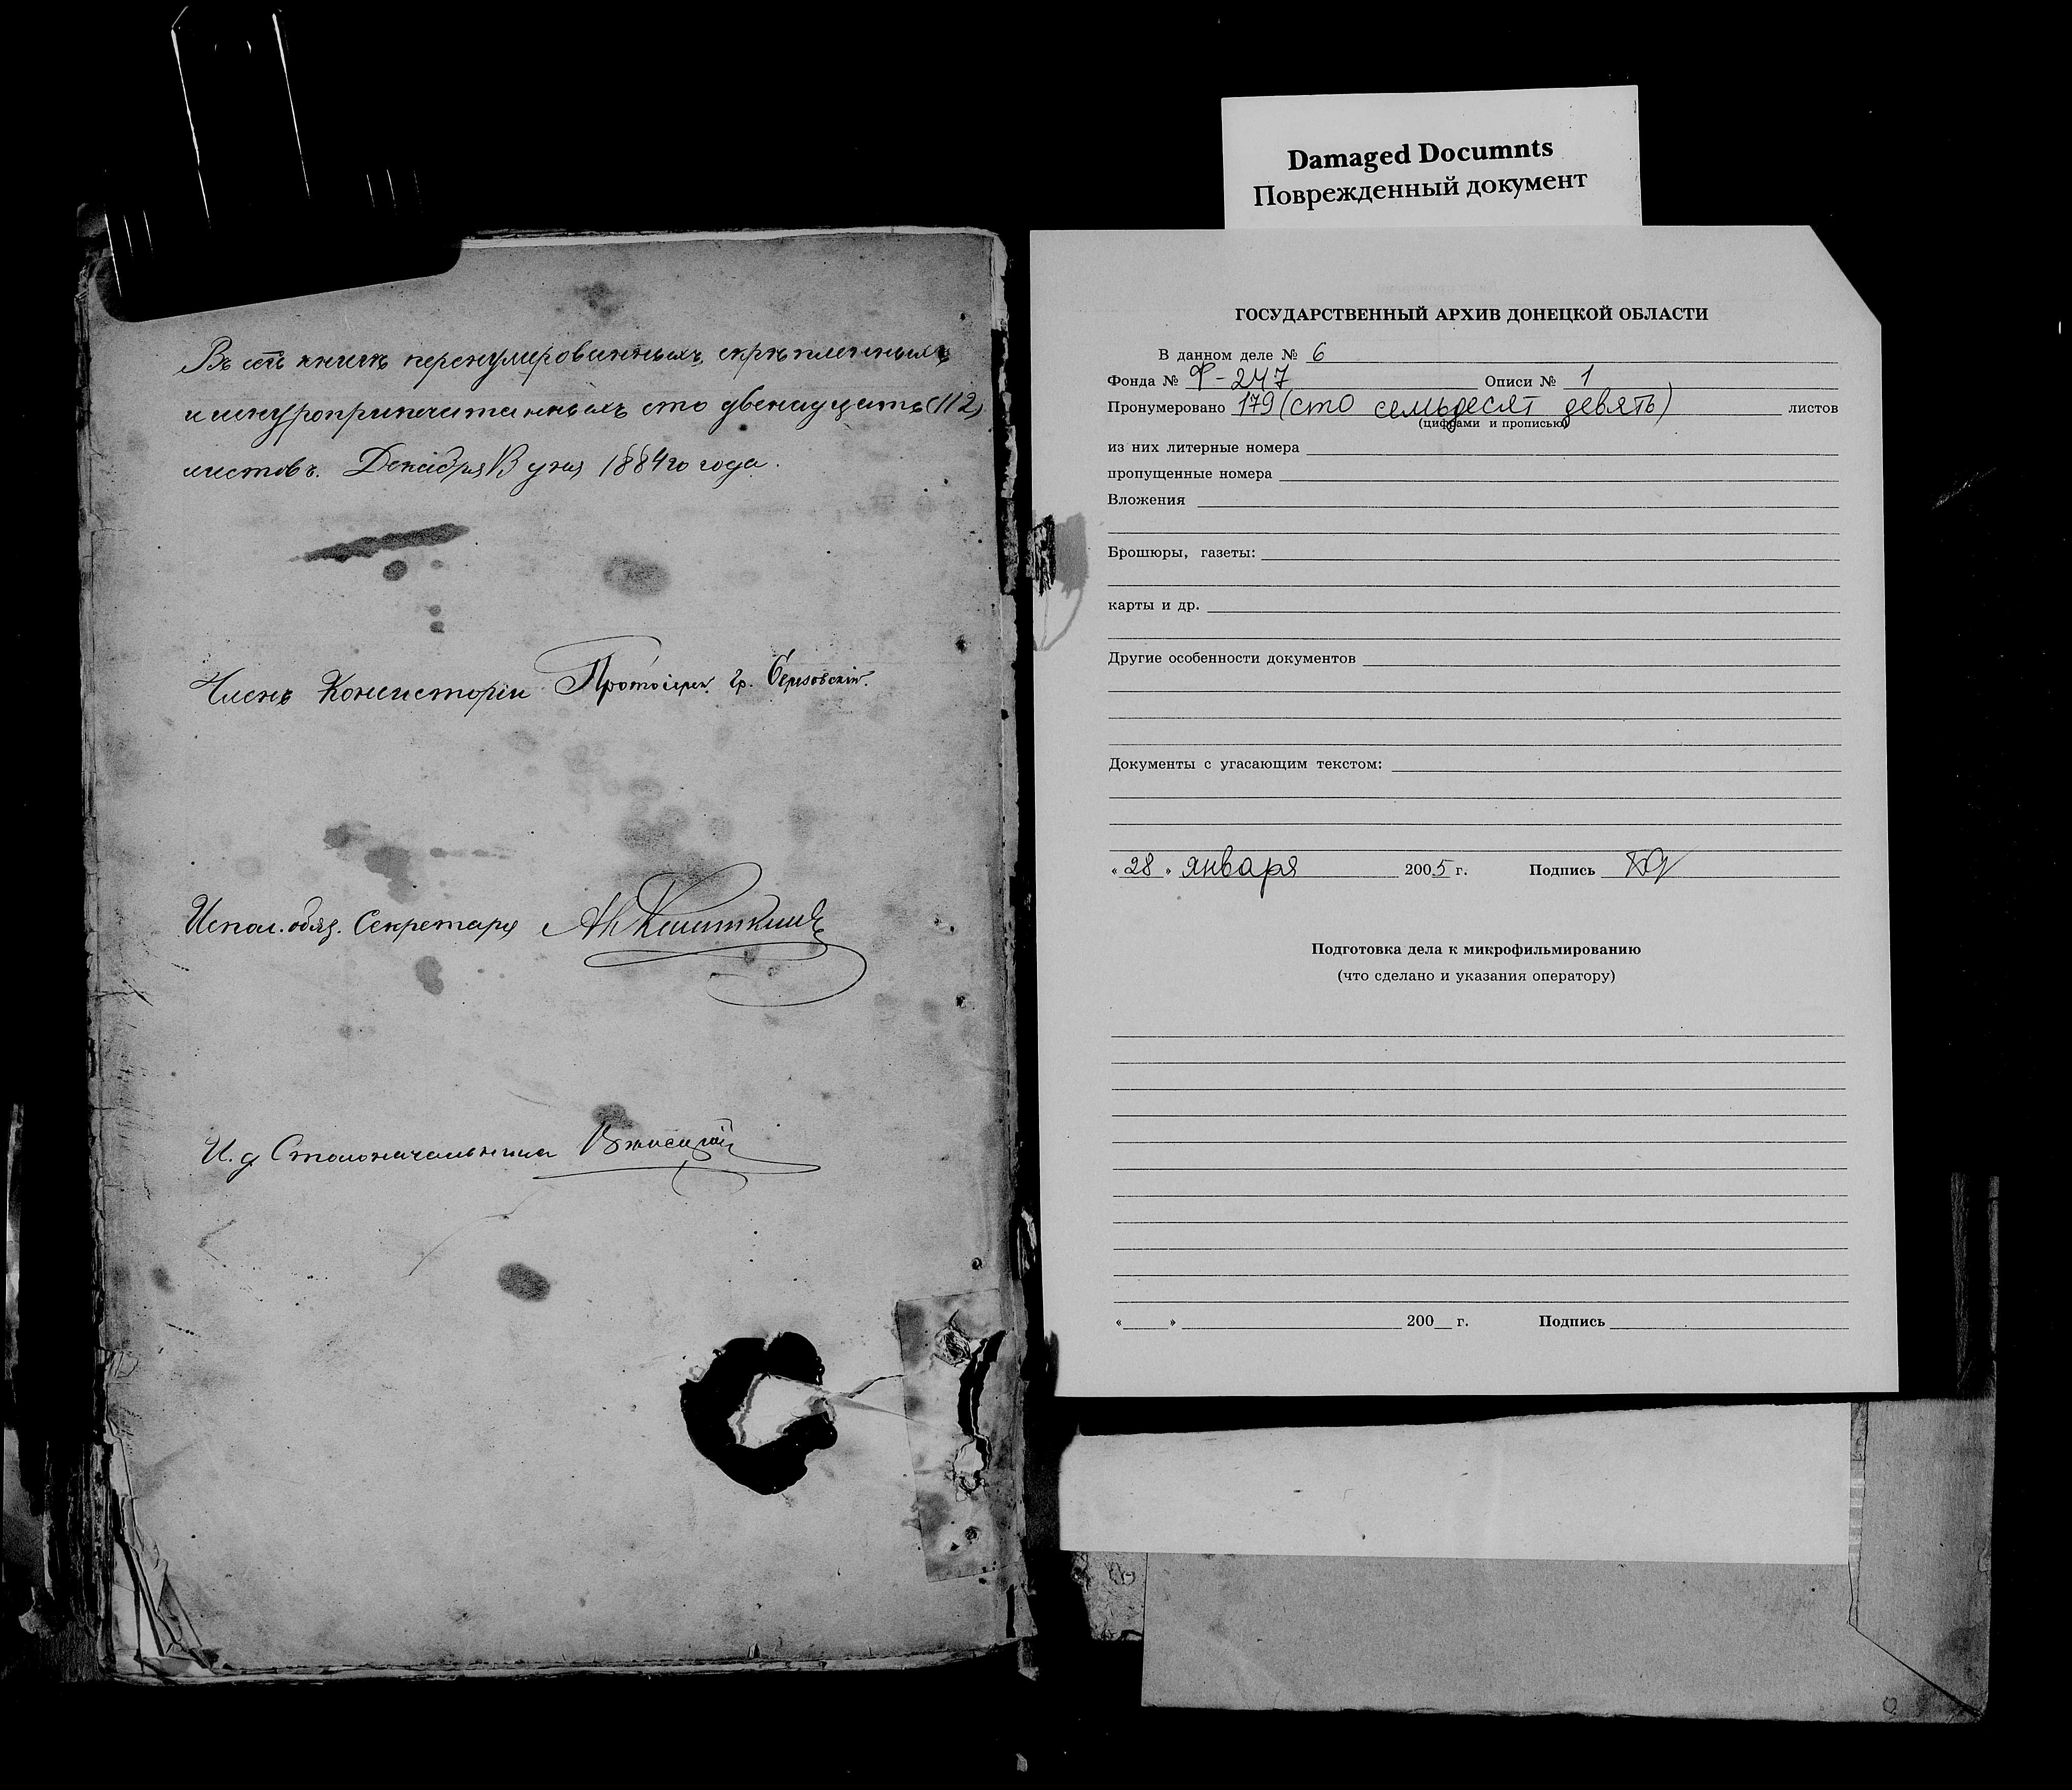 Въ сей книгѣ перенумерованныхъ, скрѣпленныхъ
и шнуроприпечатанныхъ сто двенадцать (112)
листовъ. Декабря 13 дня 1884 го года.
Членъ Консисторіи Протоіерей Гр.
Испол. обяз. Секретаря
И. д. Столоначальника
Damaged Documnts
Поврежденный документ
ГОСУДАРСТВЕННЫЙ АРХИВ ДОНЕЦКОЙ ОБЛАСТИ
В данном деле № 6
Фонда № Ф-247 Описи № 1
Пронумеровано 179 (сто семьдесят девять) листов
(цифрами и прописью)
из них литерные номера
пропущенные номера
Вложения
Брошюры, газеты:
карты и др.
Другие особенности документов
Документы с угасающим текстом:
«28» января 2005 г. Подпись
Подготовка дела к микрофильмированию
(что сделано и указания оператору)
« » 200 г. Подпись